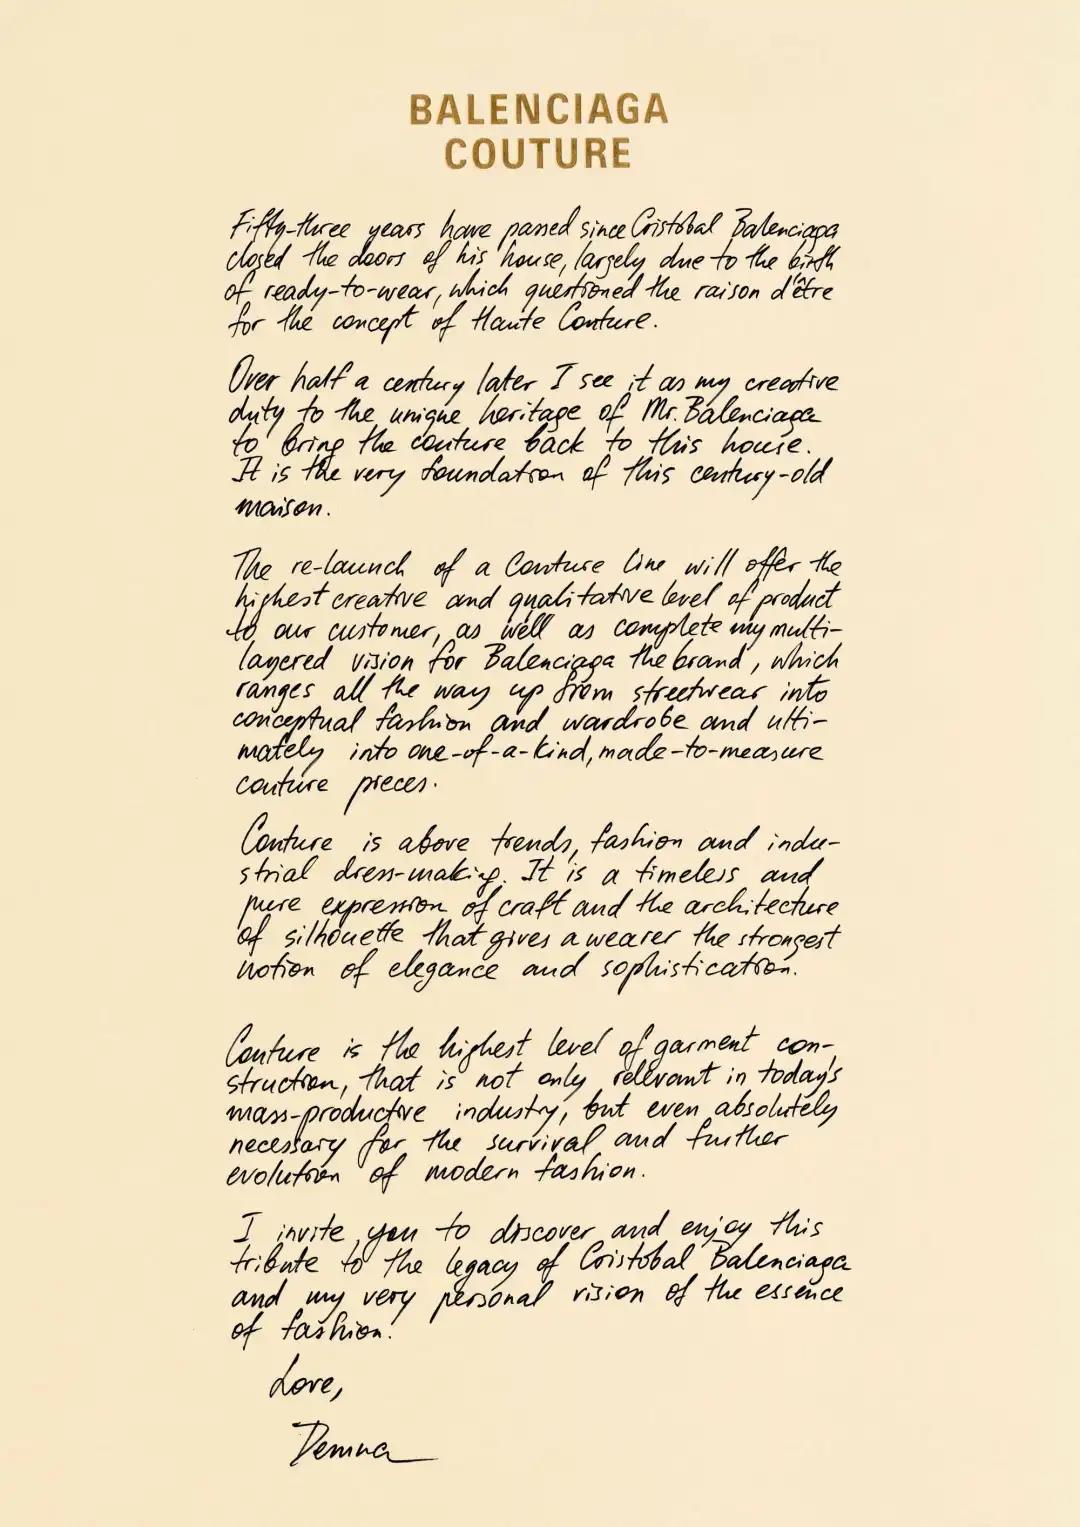 BALENCIAGA
COUTURE
Fifty-three years have passed since Cristóbal Balenciaga
closed the doors of his house, largely due to the birth
of ready-to-wear, which questioned the raison d'être
for the concept of Haute Couture.
Over half a century later I see it as my creative
duty to the unique heritage of Mr. Balenciaga
to bring the couture back to this house.
It is the very foundation of this century-old
maison.
The re-launch of a Couture line will offer the
highest creative and qualitative level of product
to our customer, as well as complete my multi-
layered vision for Balenciaga the brand, which
ranges all the way up from streetwear into
conceptual fashion and wardrobe and ulti-
mately into one-of-a-kind, made-to-measure
couture pieces.
Couture is above trends, fashion and indu-
strial dress-making. It is a timeless and
pure expression of craft and the architecture
of silhouette that gives a wearer the strongest
notion of elegance and sophistication.
Couture is the highest level of garment con-
struction, that is not only relevant in today's
mass-productive industry, but even absolutely
necessary for the survival and further
evolution of modern fashion.
I invite you to discover and enjoy this
tribute to the legacy of Cristobal Balenciaga
and my very personal vision of the essence
of fashion.
Love,
Demna